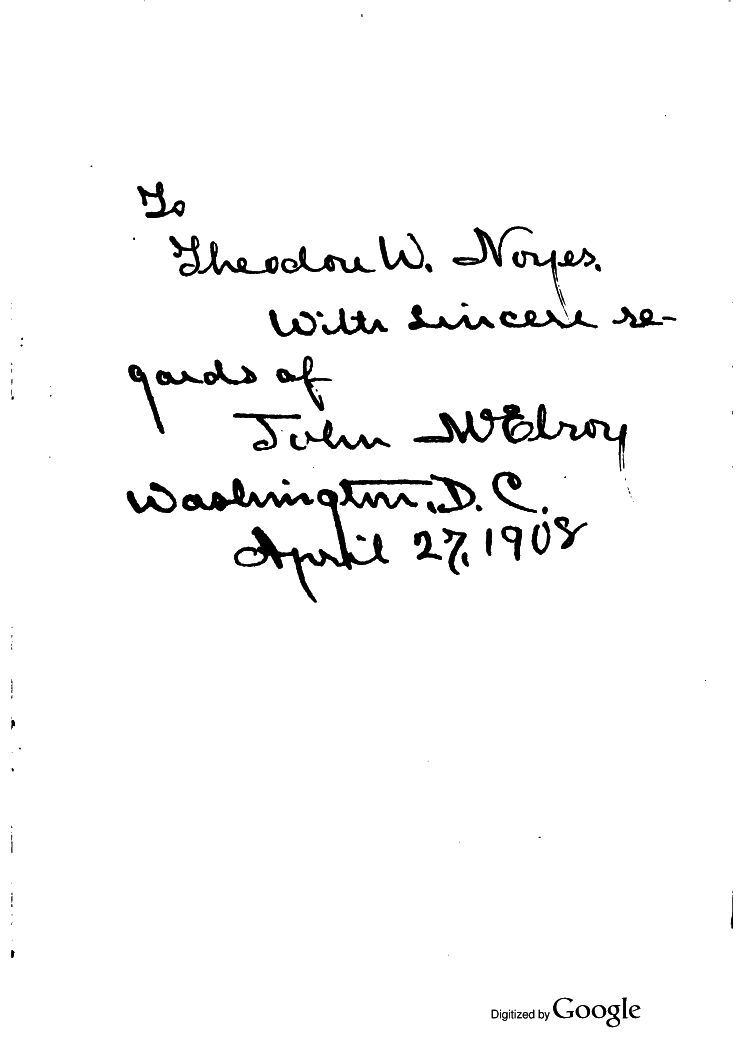 To
Theodore W. Noyes.
With sincere re-
gards of
John McElroy
Washington, D. C.
April 27, 1908
Digitized by Google